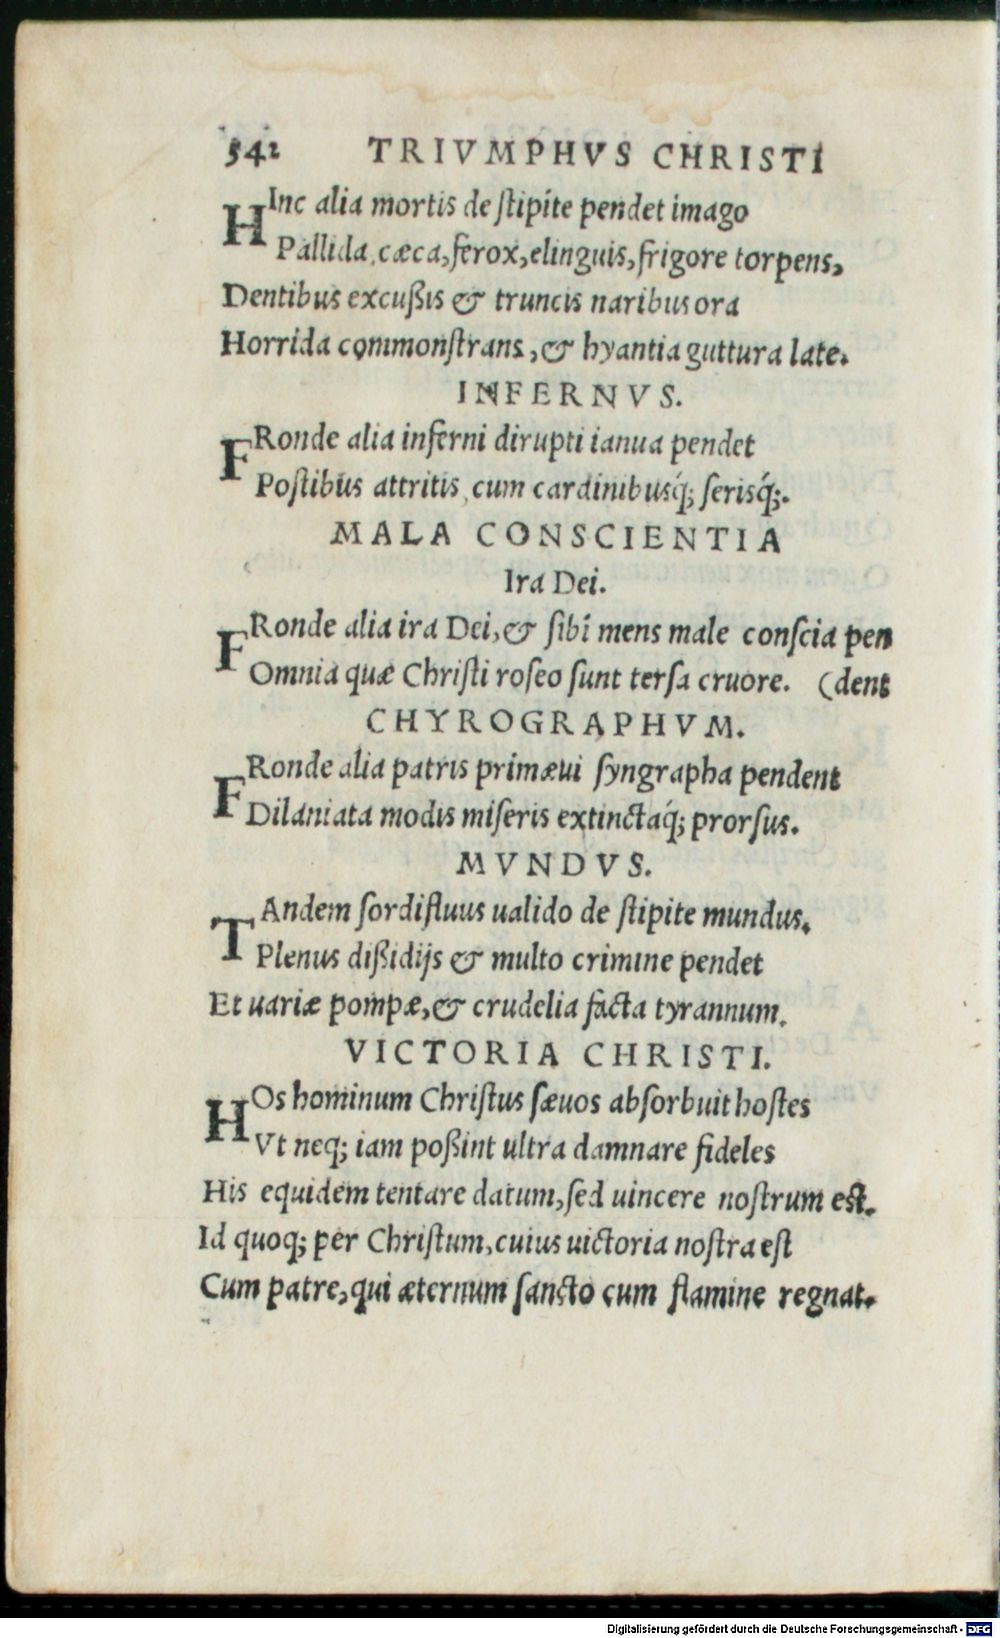 542 TRIVMPHVS CHRISTI
HInc alia mortis de ſtipite pendet imago
Pallida, cæca, ferox, elinguis, frigore torpens,
Dentibus excuſsis & truncis naribus ora
Horrida commonſtrans, & hyantia guttura late.
INFERNVS.
FRonde alia inferni dirupti ianua pendet
Poſtibus attritis, cum cardinibusq́; ſerisq́;.
MALA CONSCIENTIA
Ira Dei.
FRonde alia ira Dei, & ſibi mens male conſcia pen
Omnia quæ Chriſti roſeo ſunt terſa cruore. (dent
CHYROGRAPHVM.
FRonde alia patris primæui ſyngrapha pendent
Dilaniata modis miſeris extinctaq́; prorſus.
MVNDVS.
TAndem ſordifluus ualido de ſtipite mundus,
Plenus diſsidijs & multo crimine pendet
Et uariæ pompæ, & crudelia facta tyrannum.
VICTORIA CHRISTI.
HOs hominum Chriſtus ſæuos abſorbuit hoſtes
Vt neq; iam poſsint ultra damnare fideles
His equidem tentare datum, ſed uincere noſtrum eſt.
Id quoq; per Chriſtum, cuius uictoria noſtra eſt
Cum patre, qui æternum ſancto cum flamine regnat.
Digitalisierung gefördert durch die Deutsche Forschungsgemeinschaft - DFG